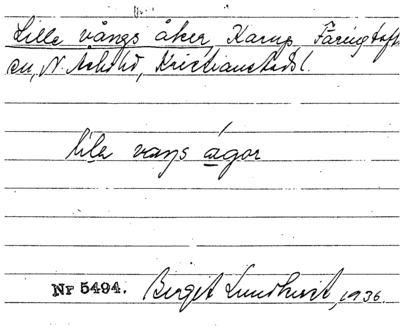 Lille vångs åker, Karup, Färingtofta
sn, N. Åsbo hd, Kristianstads l.
lila vaŋs ágor
Nr 5494. Birgit Lundkvist, 1936.